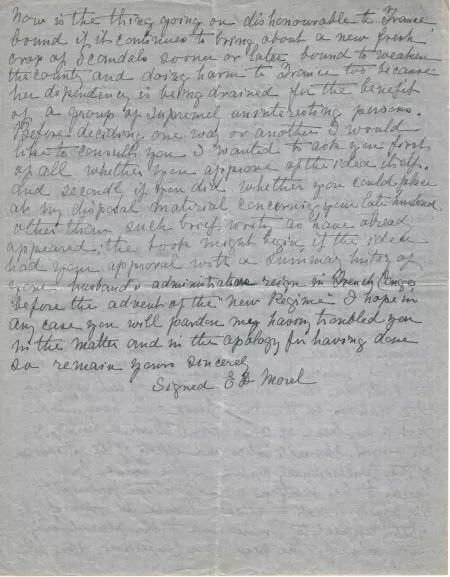 Now is the thing going on dishonourable to France
bound if it continues to bring about a new fresh
crop of Scandals sooner or later bound to weaken
the county and doing harm to France too because
her dependency is being drained for the benefit
of a group of supremel uninteresting persons.
Before deciding one way or another I would
like to consult you I wanted to ask you first
of all whether you approve of the idea itself.
And secondl if you did whether you could place
at my disposal material concerning your late husband
other than such brief works as have alread
appeared; the book might begin if the idea
had your approval with a summary history of
your husband's administrations reign in French Congo
before the advent of the "New Regime" I hope in
any case you will pardon my having troubled you
in the matter and in the apology for having done
so remain yours sincerel
Signed E D Morel